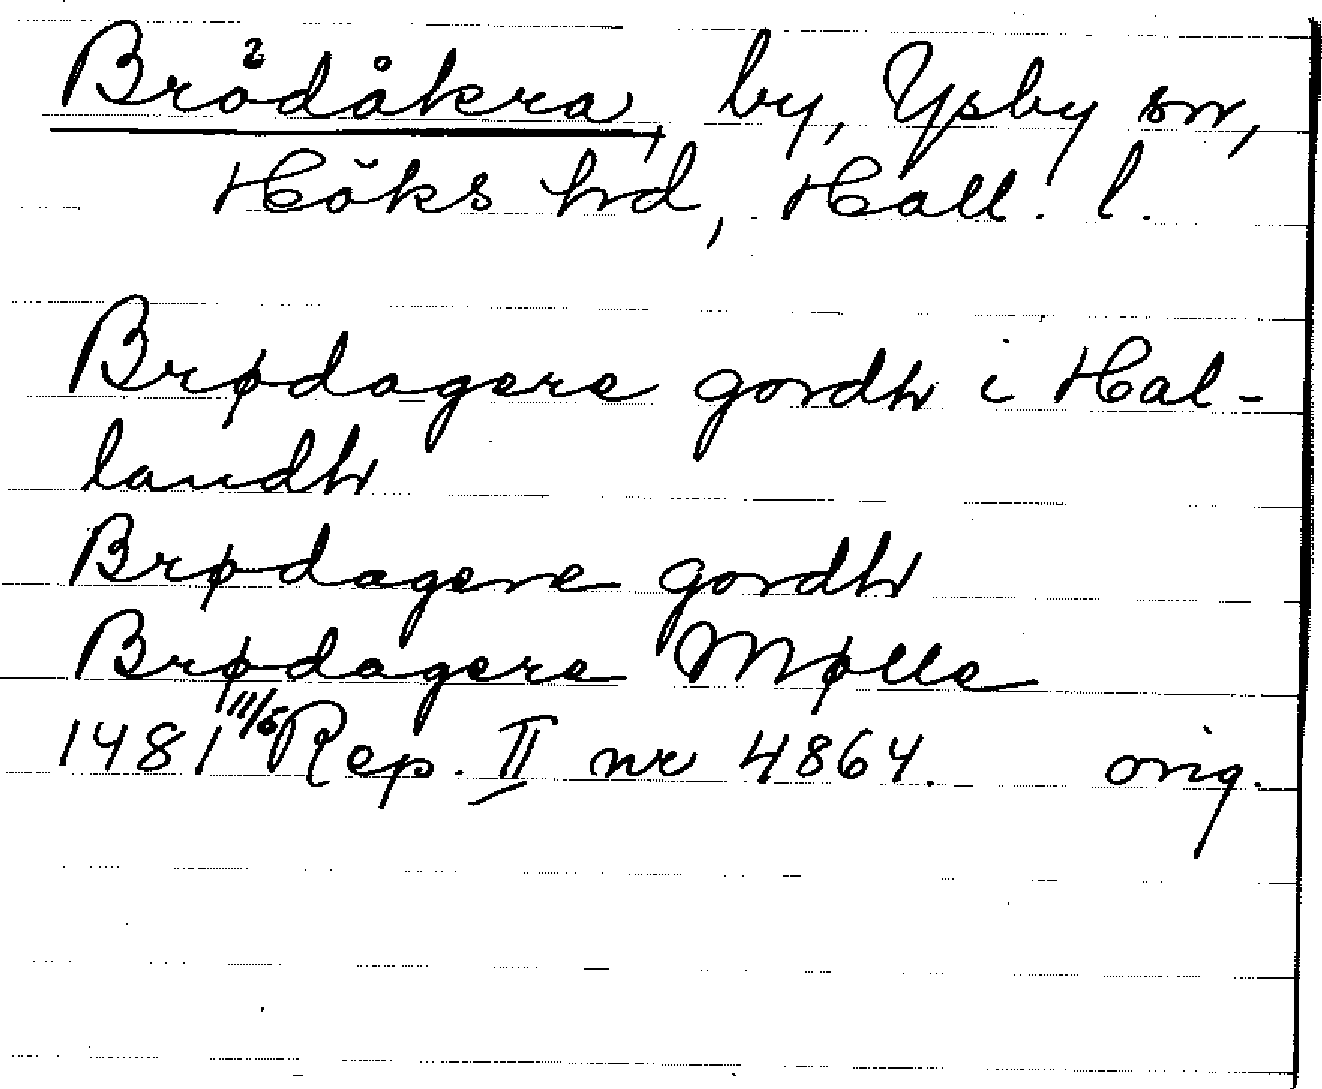 Brödåkra, by, Ysby sn,
Höks hd, Hall. l.
Brødagere gordh i Hal-
landh
Brødagere gordh
Brødagere Mølle
1481 11/5 Rep. II nr 4864. orig.